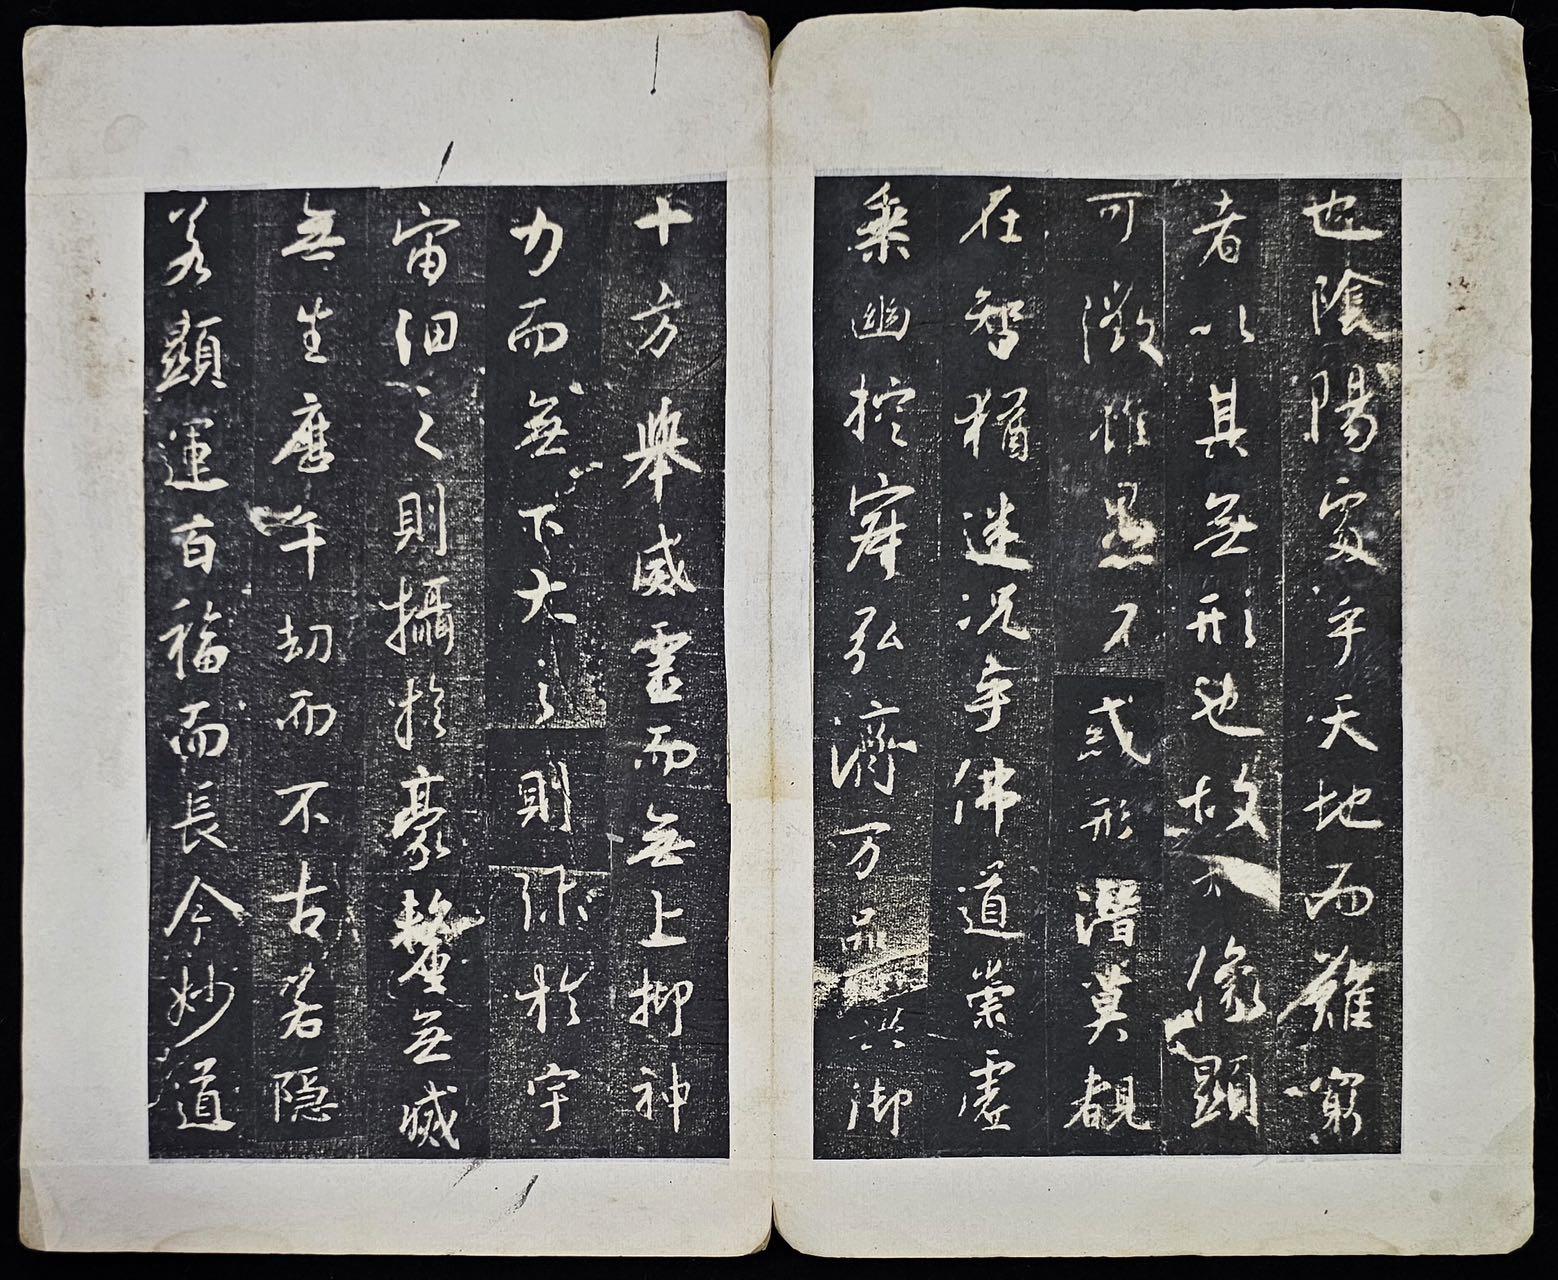 也陰陽處乎天地而難窮
者以其無形也故像顯
可徵雖愚不惑形潛莫覩
在智猶迷況乎佛道崇虛
乘幽控寂弘濟万品典御
十方舉威靈而無上抑神
力而無下大之則彌於宇
宙細之則攝於豪釐無滅
無生歷千劫而不古若隱
若顯運百福而長今妙道